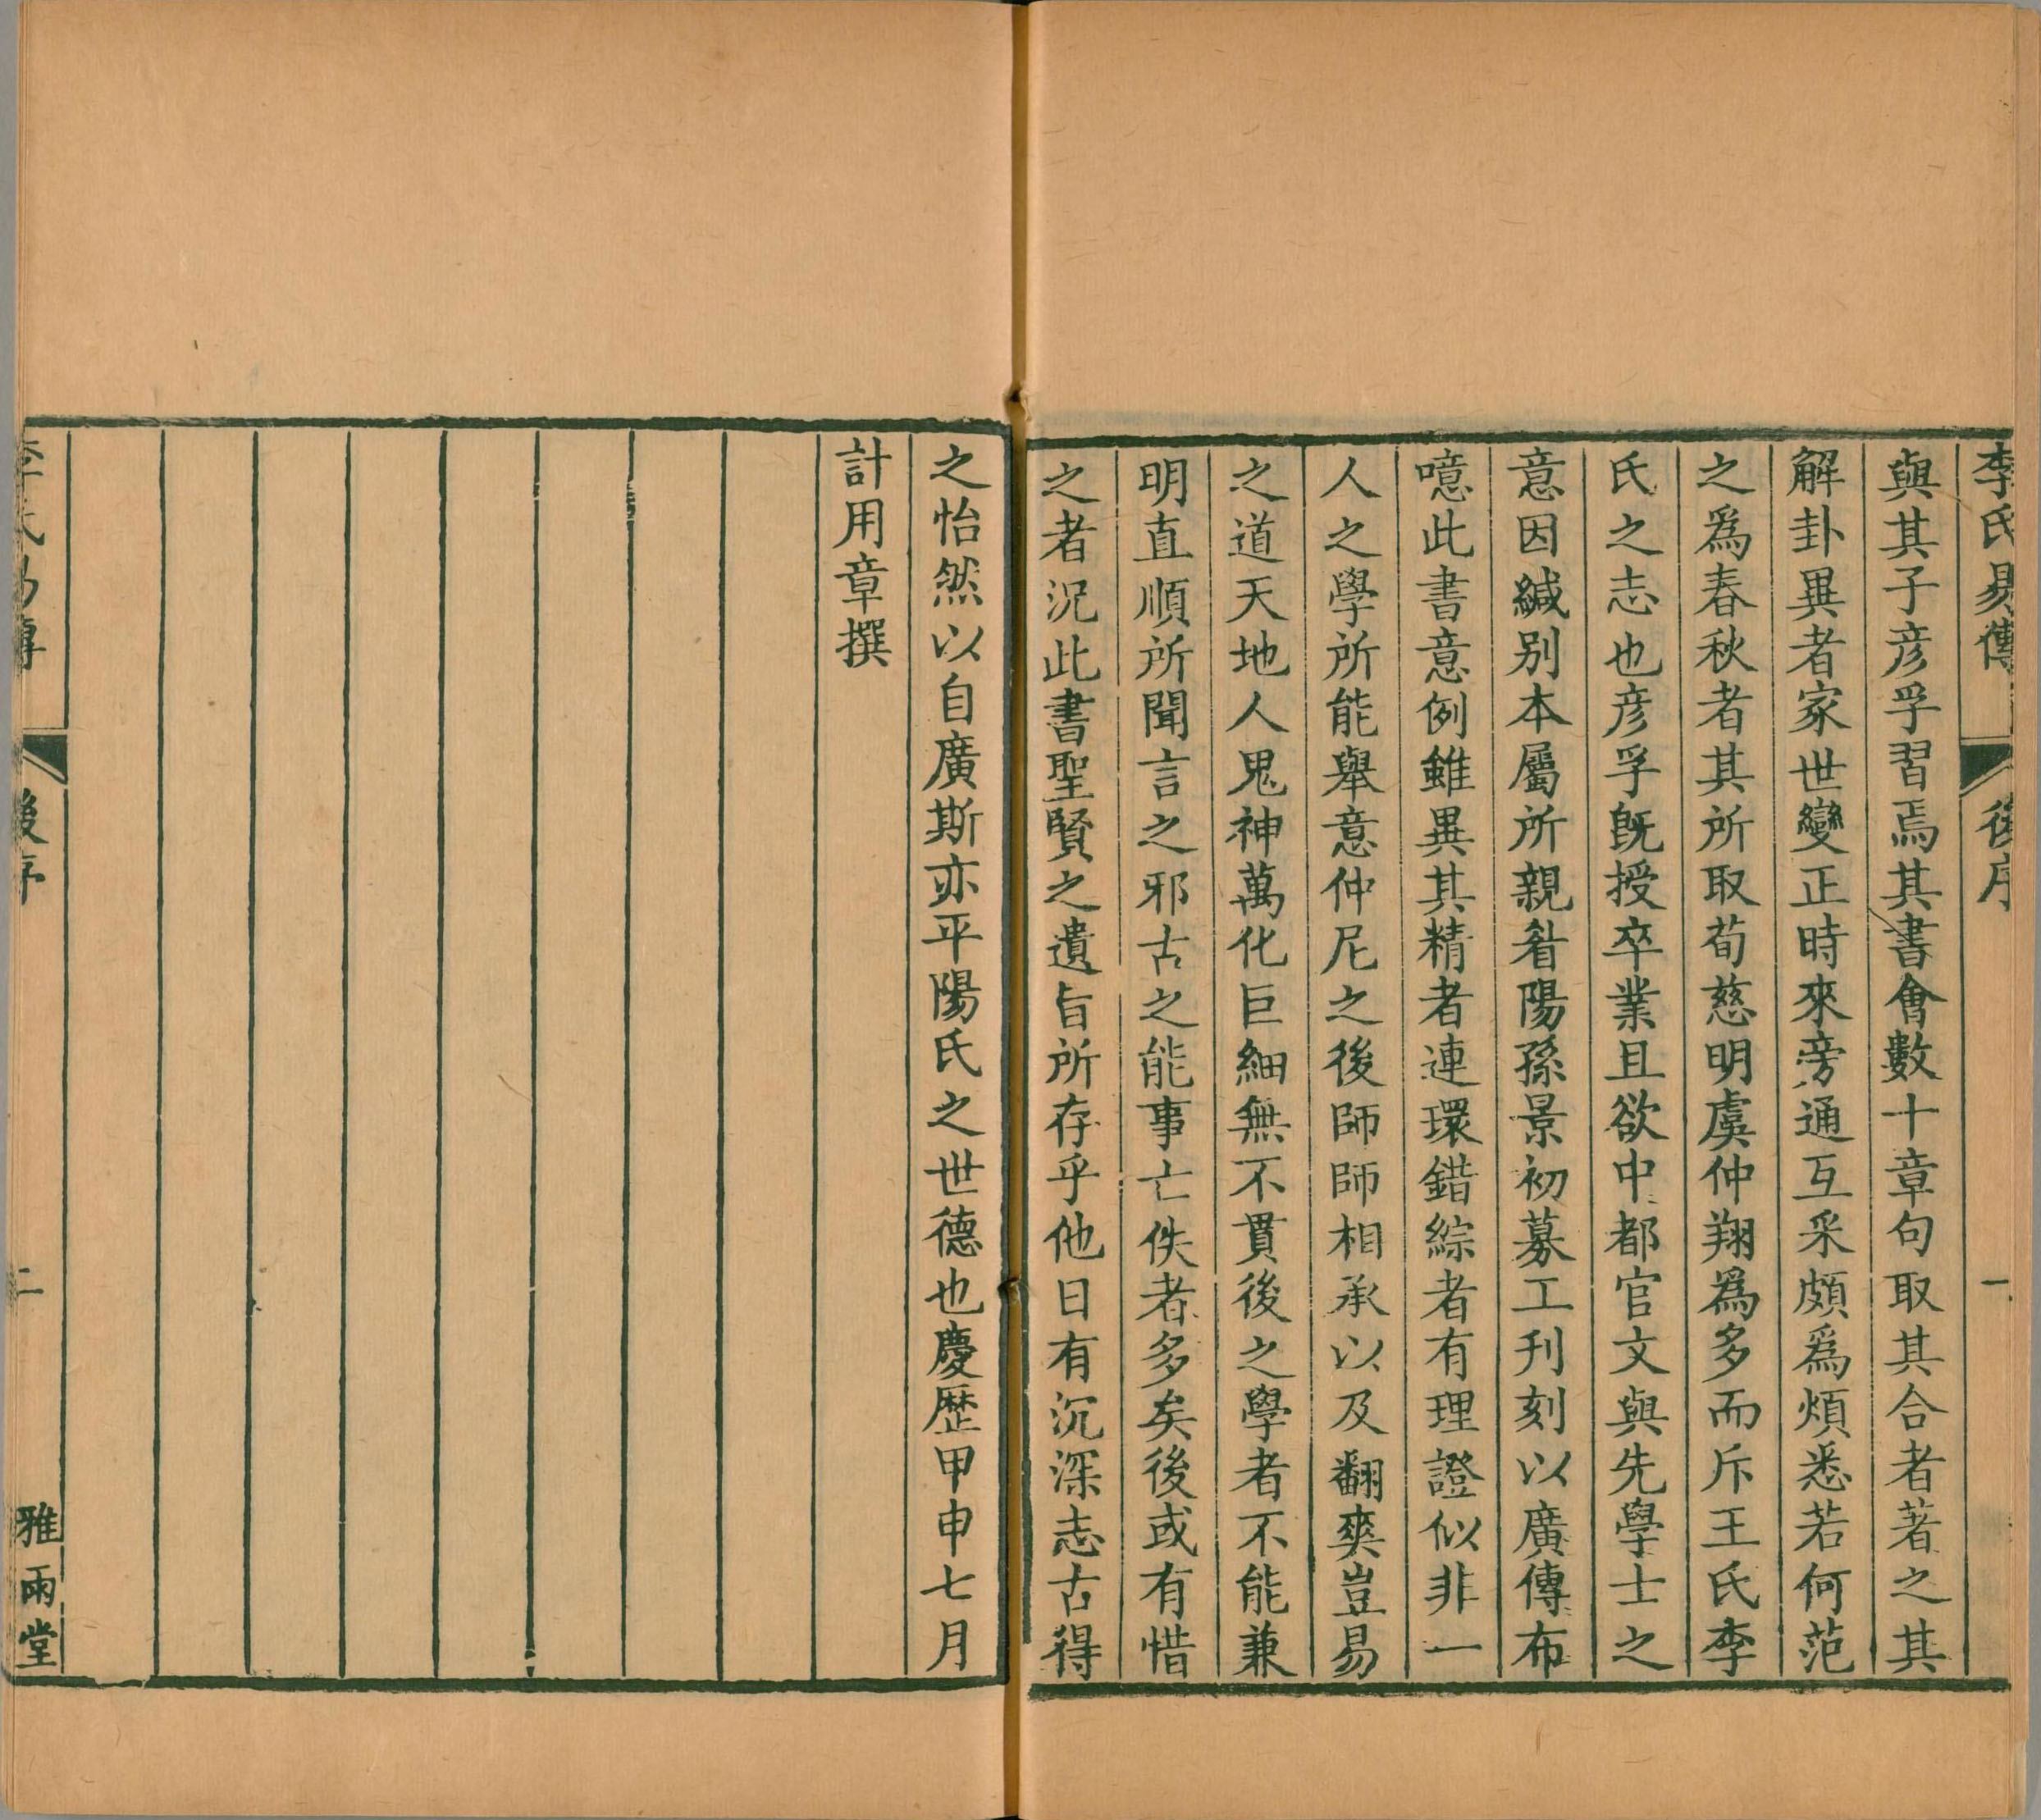 李氏易傳 後序 一
與其子彦孚習焉其書會數十章句取其合者著之其
解卦異者家世變正時來旁通互采頗爲煩悉若何范
之爲春秋者其所取荀慈明虞仲翔爲多而斥王氏李
氏之志也彦孚既授卒業且欲中都官文與先學士之
意因緘别本屬所親眷陽孫景初募工刋刻以廣傳布
噫此書意例雖異其精者連環錯綜者有理證似非一
人之學所能舉意仲尼之後師師相承以及翻爽豈易
之道天地人鬼神萬化巨細無不貫後之學者不能兼
明直順所聞言之邪古之能事亡佚者多矣後或有惜
之者况此書聖賢之遺旨所存乎他日有沉深志古得
之怡然以自廣斯亦平陽氏之世德也慶歴甲申七月
計用章撰
李氏易傳 後序 二 雅雨堂